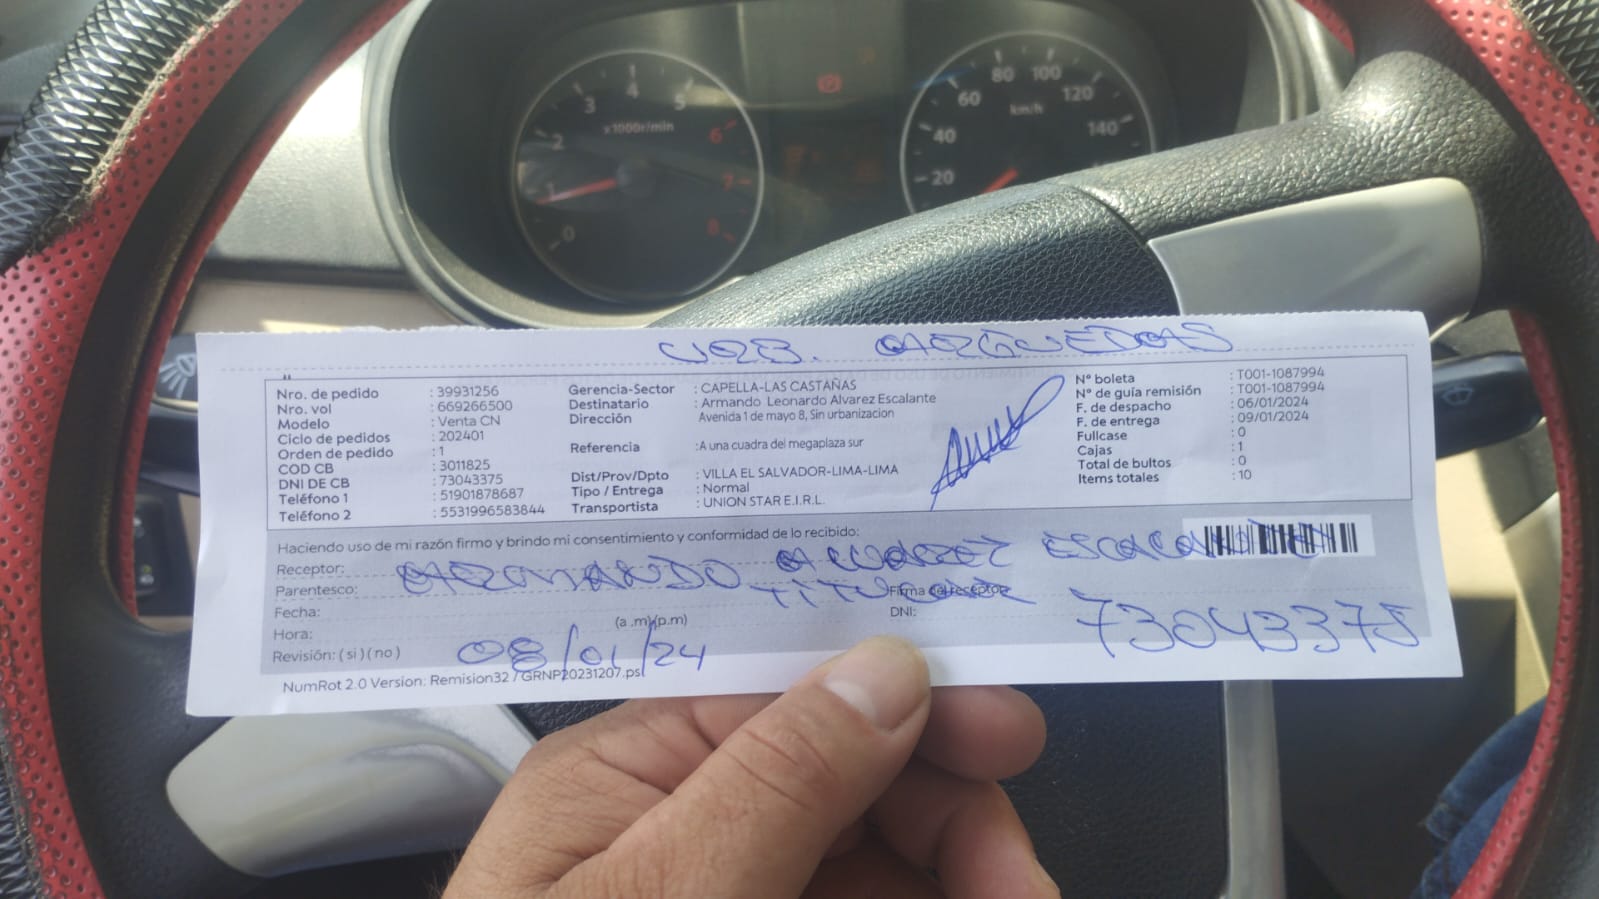 0 1 2 3 4 5 6 7 8
x1000r/min
20 40 60 80 100 120 140
km/h
URB. ARGUEDAS
Nro. de pedido : 39931256
Nro. vol : 669266500
Modelo : Venta CN
Ciclo de pedidos : 202401
Orden de pedido : 1
COD CB : 3011825
DNI DE CB : 73043375
Teléfono 1 : 51901878687
Teléfono 2 : 5531996583844
Gerencia-Sector : CAPELLA-LAS CASTAÑAS
Destinatario : Armando Leonardo Alvarez Escalante
Dirección Avenida 1 de mayo 8, Sin urbanizacion
Referencia :A una cuadra del megaplaza sur
Dist/Prov/Dpto : VILLA EL SALVADOR-LIMA-LIMA
Tipo / Entrega : Normal
Transportista : UNION STAR E.I.R.L.
N° boleta : T001-1087994
N° de guía remisión : T001-1087994
F. de despacho : 06/01/2024
F. de entrega : 09/01/2024
Fullcase : 0
Cajas : 1
Total de bultos : 0
Items totales : 10
Haciendo uso de mi razón firmo y brindo mi consentimiento y conformidad de lo recibido:
Receptor: ARMANDO ALVAREZ ESCALANTE
Parentesco: TITULAR
Firma del receptor
Fecha: 08/01/24
DNI: 73043375
Hora: (a .m)(p.m)
Revisión: ( si ) ( no )
NumRot 2.0 Version: Remision32 / GRNP20231207.psl